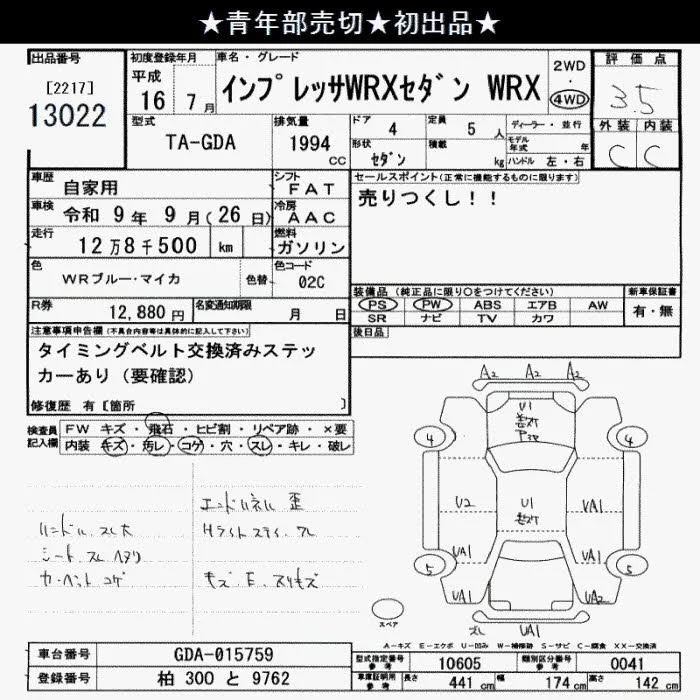 ★青年部売切★初出品★
出品番号
[2217]
13022
初度登録年月
平成
16 7月
車名・グレード
インプレッサWRXセダン WRX
2WD
・
4WD
評価点
3.5
外装 内装
C C
型式
TA-GDA
排気量
1994
CC
ドア 4
定員 5 人
形状 セダン
積載 kg
ディーラー・並行
モデル年式 年
ハンドル 左・右
車歴 自家用
シフト FAT
車検 令和 9年 9月(26日)
冷房 AAC
走行 12万8千500 km
燃料 ガソリン
色 WRブルー・マイカ
色替
色コード 02C
R券 12,880円
名変通知期限 月 日
セールスポイント(正常に機能するものに限ります)
売りつくし！！
装備品(純正品に限り○をつけてください)
PS PW ABS エアB AW
SR ナビ TV カワ
新車保証書
有・無
後日品
注意事項申告欄(不具合内容等は具体的に記入して下さい)
タイミングベルト交換済みステッ
カーあり(要確認)
修復歴 有〔箇所 〕
検査員記入欄
FW キズ・飛石・ヒビ割・リペア跡・×要
内装 キズ・汚レ・コゲ・穴・スレ・キレ・破レ
エンドパネル 歪
ハンドル スレ大
Hライトステイ ワレ
シート スレ ヘタリ
カーペット コゲ
キズ E スリキズ
A2 A2 A2
U1
4 4
U2
U1
UA1
UA1
UA1
5 5
UA1
UA2
UA1
スペア
A－キズ E－エクボ U－凹み W－補修跡 S－サビ C－腐食 XX－交換済
車台番号 GDA-015759
登録番号 柏 300 と 9762
型式指定番号 参考 10605
類別区分番号 参考 0041
車庫証明用 参考 長さ 441 cm 幅 174 cm 高さ 142 cm